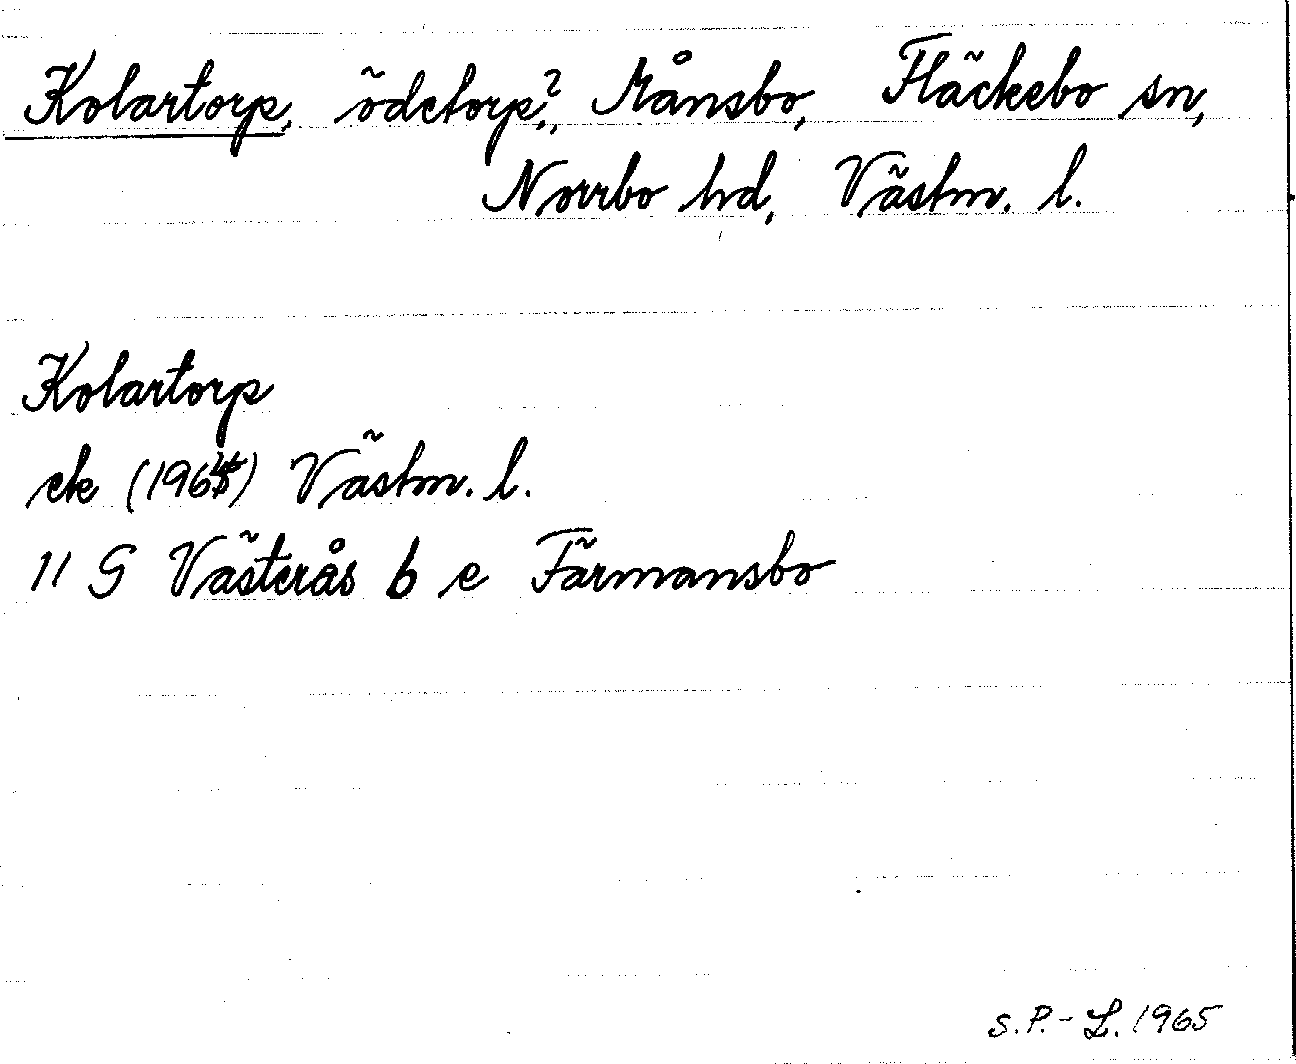 Kolartorp, ödetorp?, Månsbo, Fläckebo sn,
Norrbo hd, Västm. l.
Kolartorp
ek (1964) Västm. l.
11 G Västerås 6 e Färmansbo
S.P.-L. 1965